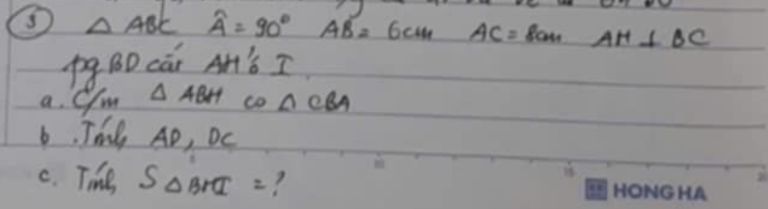 ③ △ ABC Â = 90° AB = 6cm AC = 8cm AH ⊥ BC
pg BD cắt AH ở I
a. C/m △ ABH ∽ △ CBA
b. Tính AD, DC
c. Tính S △ BHI = ?
HONG HA